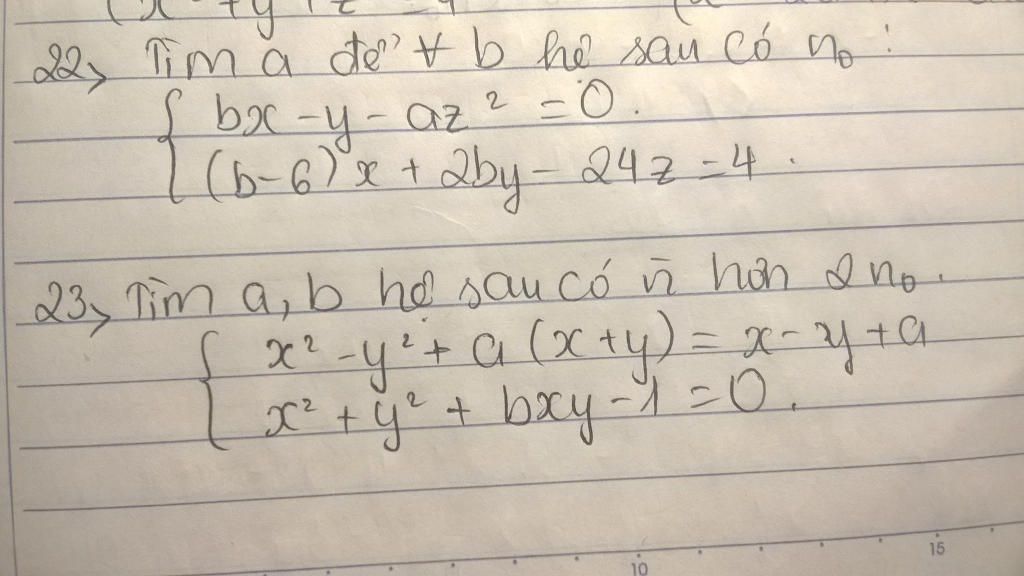 22, Tìm a để ∀ b hệ sau có n₀ :
bx - y - az² = 0.
(b-6)x + 2by - 24z = 4.
23, Tìm a, b hệ sau có n̄ hơn 2 n₀.
x² - y² + a(x+y) = x - y + a
x² + y² + bxy - 1 = 0.
10
15